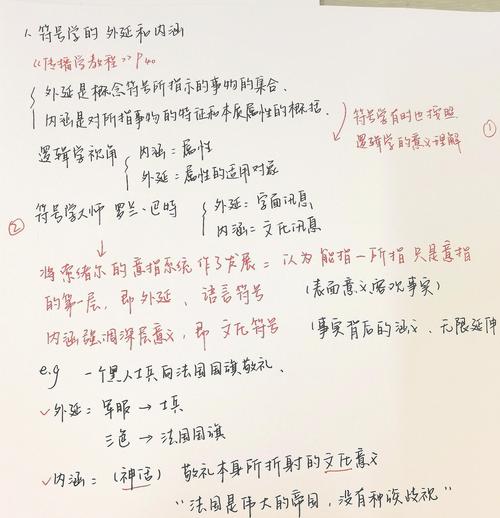 1. 符号学的 外延和内涵
《传播学教程》P40
外延是概念符号所指示的事物的集合.
内涵是对所指事物的特征和本质属性的概括.
符号学有时也按照
逻辑学的意义理解
①
逻辑学视角 内涵=属性
外延=属性的适用对象
② 符号学大师 罗兰·巴特 外延=字面讯息
内涵=文化讯息
将索绪尔的意指系统作了发展=认为能指—所指 只是意指
的第一层, 即外延、语言符号 (表面意义客观事实)
内涵强调深层意义, 即 文化符号 (事实背后的涵义、无限延伸
e.g 一个黑人士兵向法国国旗敬礼.
✓外延= 军服→士兵
三色→法国国旗
✓内涵=(神话) 敬礼本身所折射的文化意义
“法国是伟大的帝国,没有种族歧视”